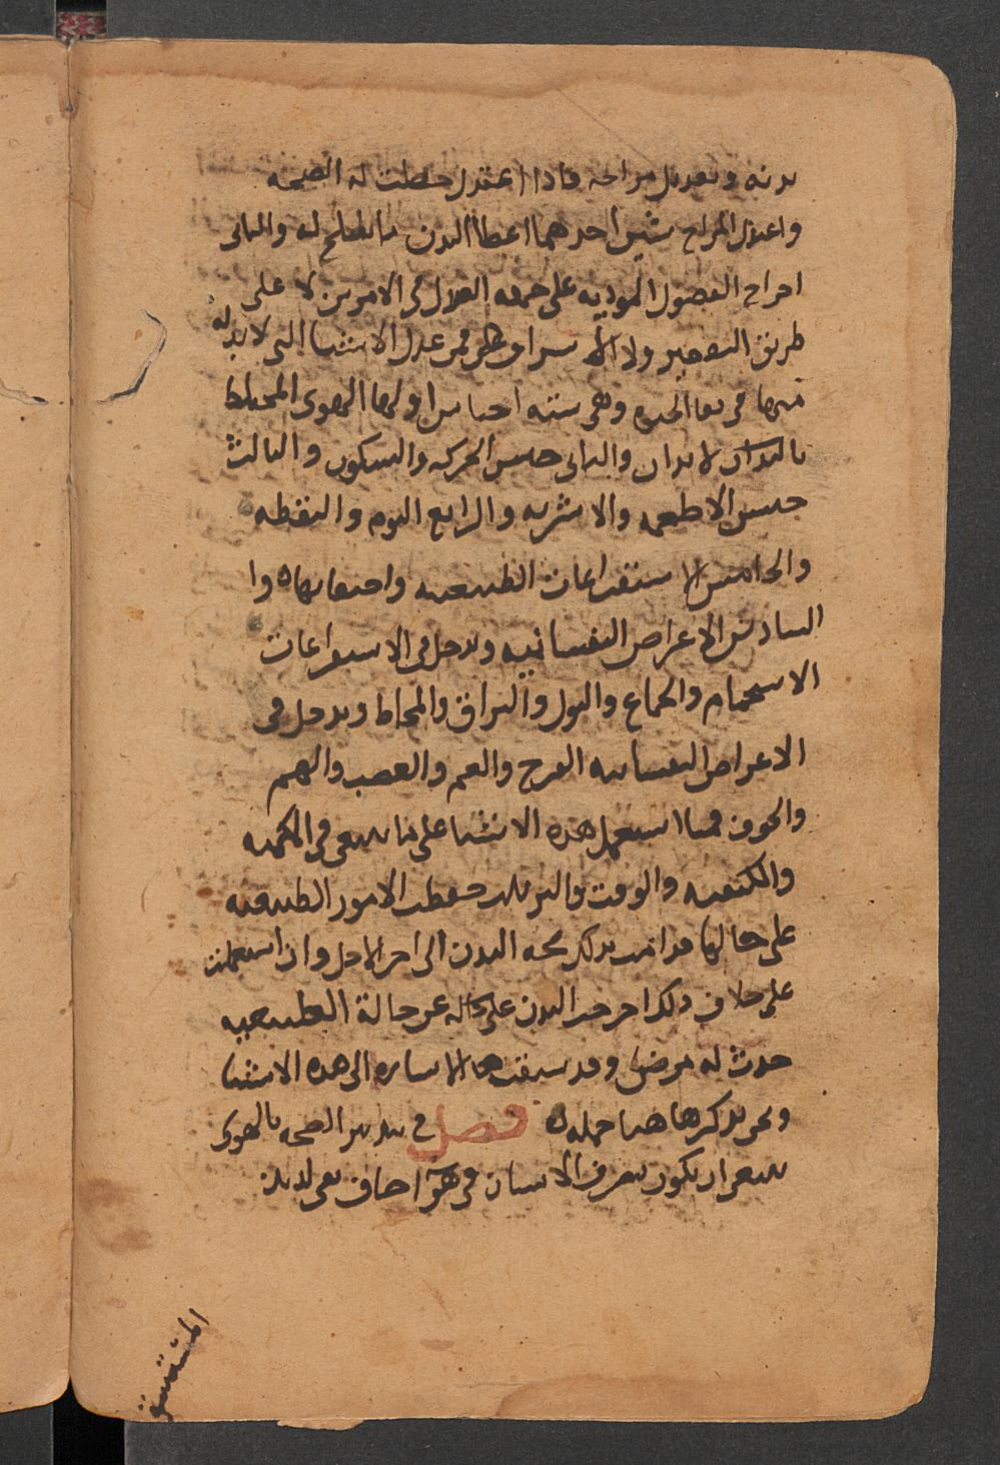 بدنه وتعديل مزاجه فاذا اعتدل حصلت له الصحه
واعتدال المزاج بشيئين احدهما اعطا البدن ما يصلح له والثانى
اخراج الفضول الموديه على جهه العدل فى الامرين لا على
طريق التقصير ولا الاسراف فمن عدل الاشيا التى لا بد له
منها فى بقا الحيوه وهى سته اجناس اولها الهوى المحيط
بالابدان والثانى جنس الحركه والسكون والثالث
جنس الاطعمه والاشربه والرابع النوم واليقظه
والخامس الاستفراغات الطبيعيه واحتقانها وا
السادس الاعراض النفسانيه ويدخل فى الاستفراغات
الاستحمام والجماع والبول والبزاق والمخاط ويدخل فى
الاعراض النفسانيه الفرح والغم والغضب والهم
والخوف فمتا استعمل هذه الاشيا على ما ينبغى فى الكميه
والكيفيه والوقت والترتيب حفظت الامور الطبيعيه
على حالها فدامت بذلك صحه البدن الى اخر الاجل وان استعملت
على خلاف ذلك اخرجت البدن عن حالة الطبيعيه
حدث له مرض وقد سبقت الاشاره الى هذه الاشيا
ونحن نذكرها هنا جمله فصل فى تدبير الصحه بالهوى
ينبغى ان يكون تصرف الانسان فى هوآ صاف نقى لذيذ
المستنشق